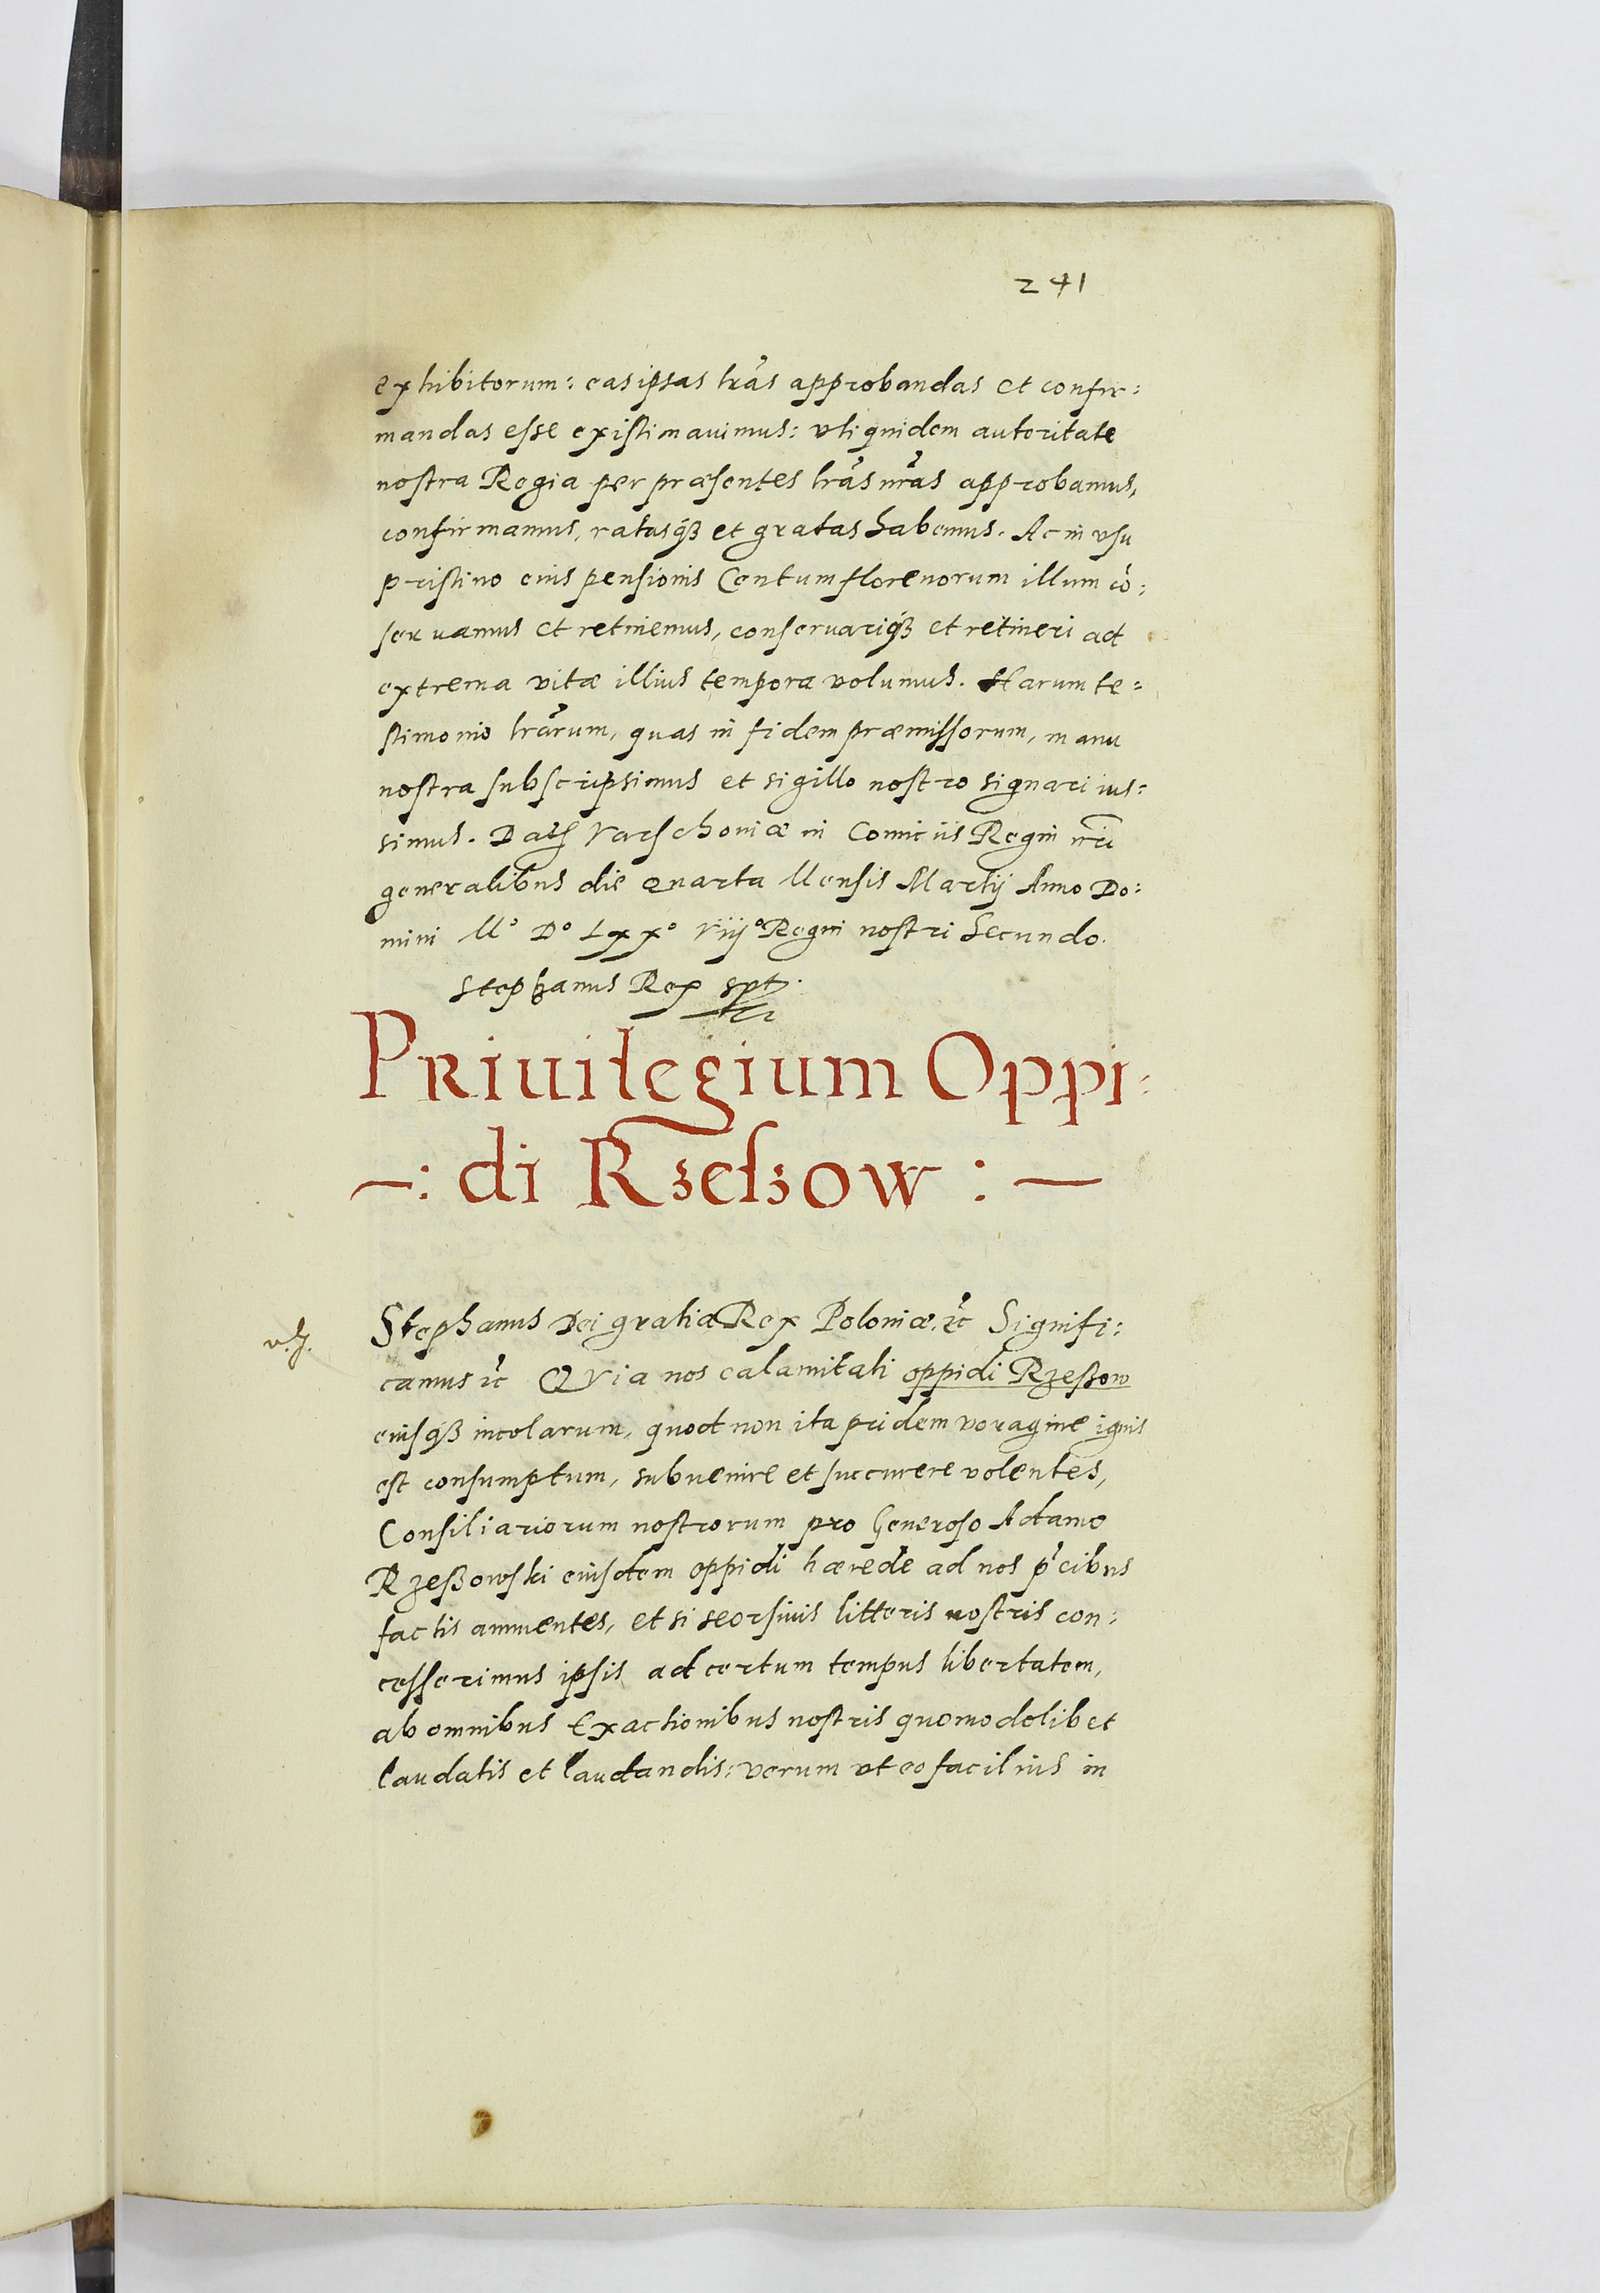 241
exhibitorum: eas ipsas lras approbandas et confir:
mandas esse existimauimus: vti quidem autoritate
nostra Regia per præsentes lras nras approbamus,
confirmamus, ratasq3 et gratas habemus. Ac in vsu
pristino eius pensionis Centum florenorum illum cō:
seruamus et retinemus, conseruariq3 et retineri ad
extrema vitæ illius tempora volumus. Harum te:
stimonio lrarum, quas in fidem præmissorum, manu
nostra subscripsimus et sigillo nostro signari ius:
simus. Dat Varschouiæ in Comitiis Regni nri
generalibus die Quarta Mensis Martij Anno Do:
mini Mº Dº Lxxº Viijº Regni nostri Secundo.
Stephanus Rex spt.
Priuilegium Oppi:
—: di Rzeszow : —
Stephanus Dei gratia Rex Poloniæ, ēc Signifi:
camus ēc QVia nos calamitati oppidi Rzeßow
eiusq3 incolarum, quod non ita pridem voragine ignis
est consumptum, subuenire et succurere volentes,
Consiliariorum nostrorum pro Generoso Adamo
Rzeßowski eiusdem oppidi hærede ad nos p̄cibus
factis annuentes, et si seorsiuis litteris nostris con:
cesserimus ipsis ad certum tempus libertatem,
ab omnibus Exactionibus nostris quomodolibet
laudatis et laudandis: verum vt eo facilius in